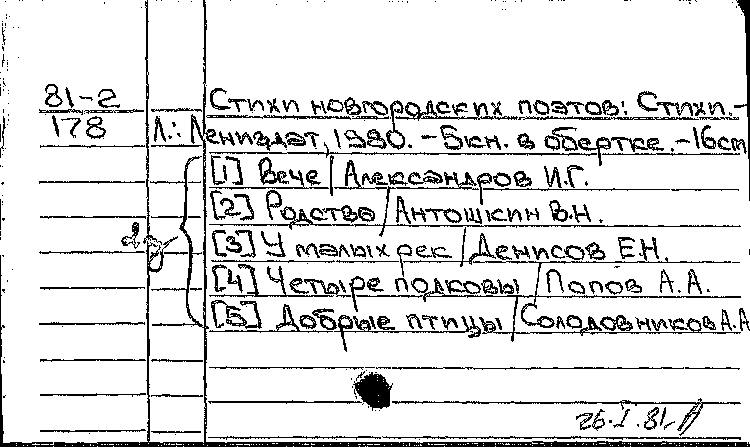 81-2
178
Стихи новгородских поэтов: Стихи.-
Л.: Лениздат, 1980. - 5кн. в обертке. - 16cm
[1] Вече / Александров И.Г.
[2] Родство / Антошкин В.Н.
[3] У малых рек / Денисов Е.Н.
[4] Четыре подковы / Попов А.А.
[5] Добрые птицы / Солодовников А.А
26.I.81.